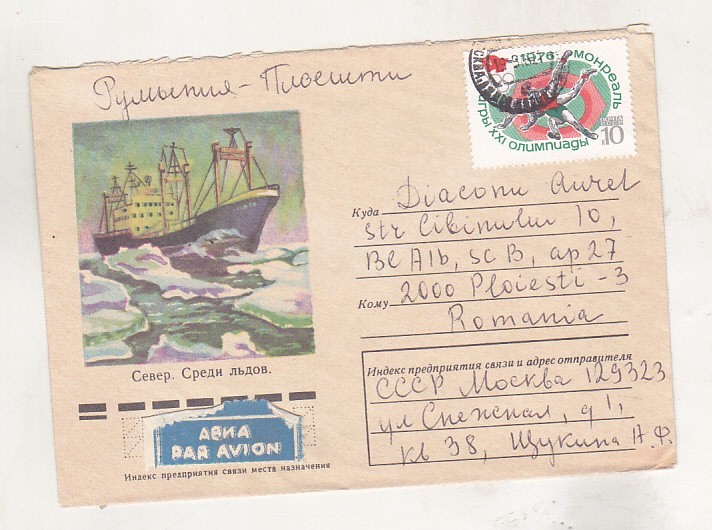 Румыния - Плоешти
1976 МОНРЕАЛЬ
ИГРЫ XXI ОЛИМПИАДЫ
10 к
Куда Diaconu Aurel
str Cibinului 10,
Bl A1b, sc B, ap 27
Кому 2000 Ploiesti - 3
Romania
Север. Среди льдов.
Индекс предприятия связи и адрес отправителя
СССР Москва 129323
ул Снежная, д 1,
кв 38, Щукина Н.Ф.
АВИА
PAR AVION
Индекс предприятия связи места назначения